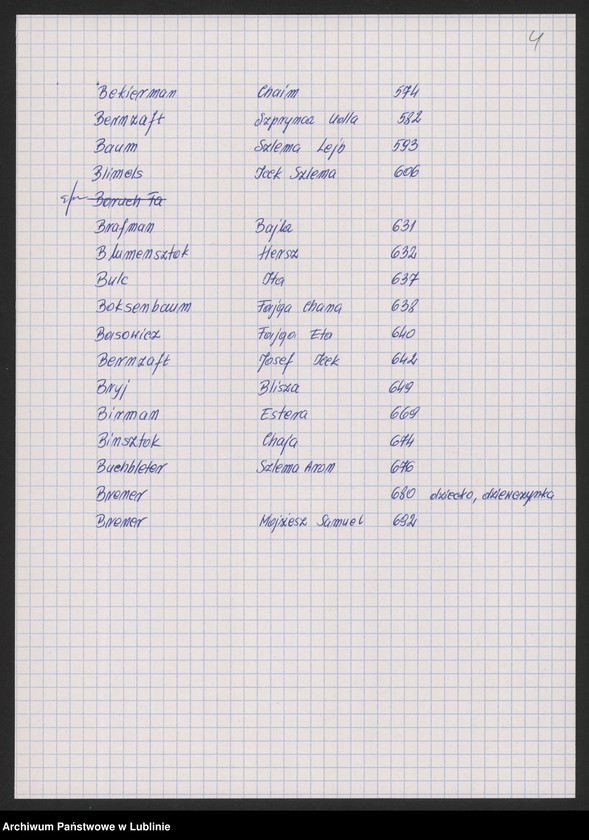 4
Bekierman Chaim 574
Bernzaft Szprynca Udla 582
Baum Szlema Lejb 593
Blimels Icek Szlema 606
Boruch Fa
Brafman Bajla 631
Blumensztok Hersz 632
Bulc Ita 637
Boksenbaum Fajga Chana 638
Basowicz Fajga Eta 640
Bernzaft Josef Icek 642
Bryj Blisza 649
Birman Estera 669
Binsztok Chaja 674
Buchbleter Szlema Aron 676
Bremer 680 dziecko, dziewczynka
Bremer Mojżesz Samuel 692
Archiwum Państwowe w Lublinie